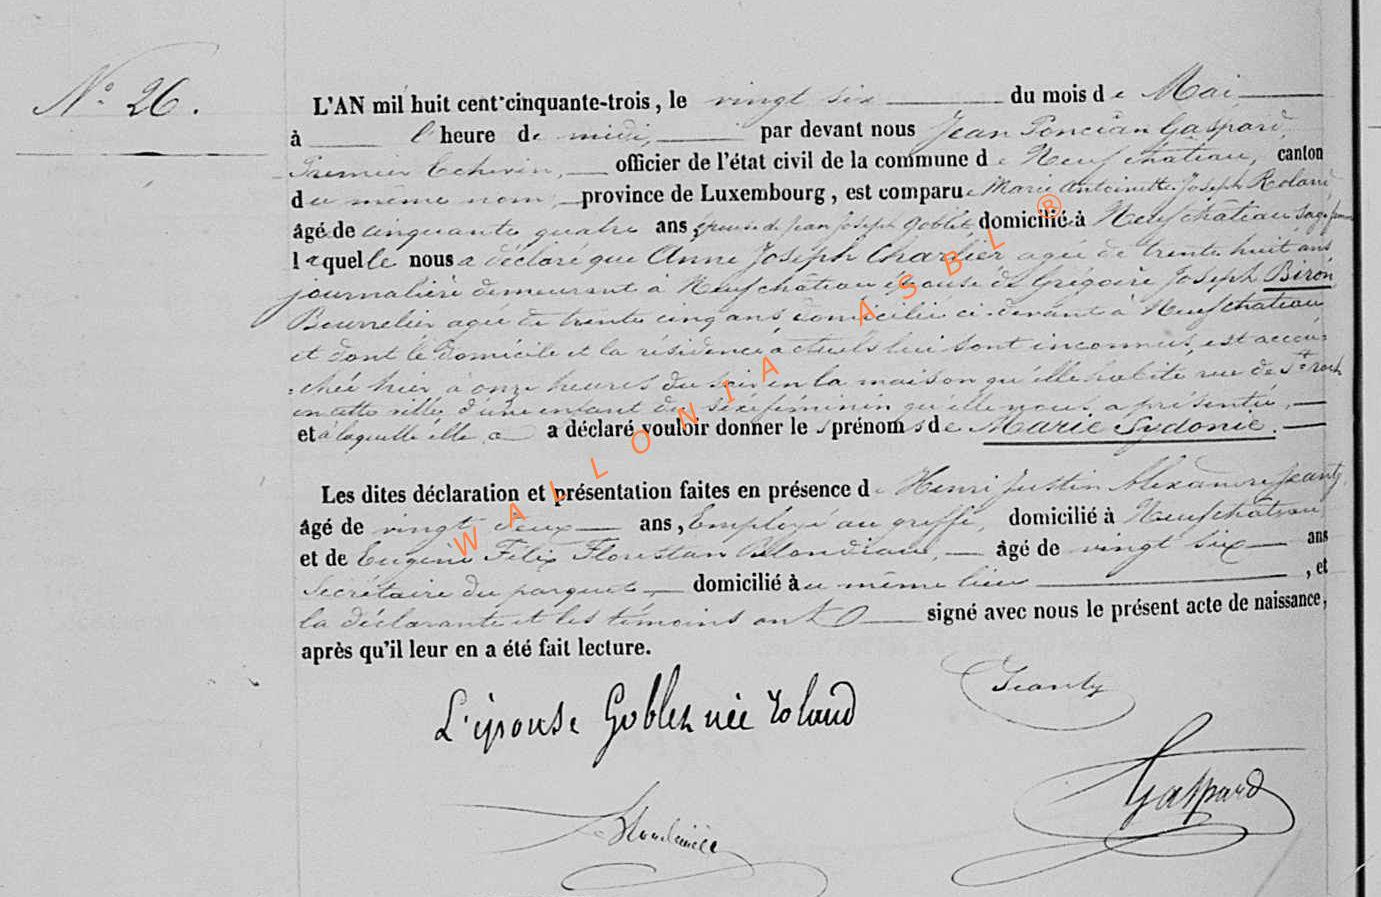 N° 26.
L'AN mil huit cent cinquante-trois, le vingt six du mois de Mai
à l'heure de midi, par devant nous Jean Poncian Gaspard
Premier Echevin, officier de l'état civil de la commune de Neufchâteau, canton
du même nom, province de Luxembourg, est comparue Marie Antoinette Joseph Roland
âgée de cinquante quatre ans, épouse de Jean Joseph Goblet domicilié à Neufchâteau sage femme
laquelle nous a déclaré que Anne Joseph Charlier agée de trente huit ans
journalière demeurant à Neufchâteau épouse de Grégoire Joseph Biron
Bourrelier agé de trente cinq ans domicilié ci-devant à Neufchâteau
et dont le domicile et la résidence actuels lui sont inconnus, est accou-
chée hier à onze heures du soir en la maison qu'elle habite rue de St roch
en cette ville, d'une enfant du sexe féminin qu'elle nous a présentée,
et à laquelle elle a a déclaré vouloir donner les prénoms de Marie Sydonie.
Les dites déclaration et présentation faites en présence de Henri Justin Alexandre Jeanty
âgé de vingt deux ans, Employé au greffe, domicilié à Neufchâteau
et de Eugène Félix Florestan âgé de vingt six ans
Secrétaire du parquet domicilié au même lieu , et
la déclarante et les témoins ont signé avec nous le présent acte de naissance,
après qu'il leur en a été fait lecture.
L'épouse Goblet née Roland
Jeanty
Gaspard
WALLONIA ASBL ®